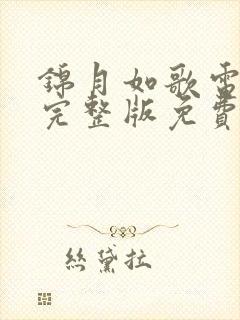 錦月如歌電
完整版免費
絲黛拉